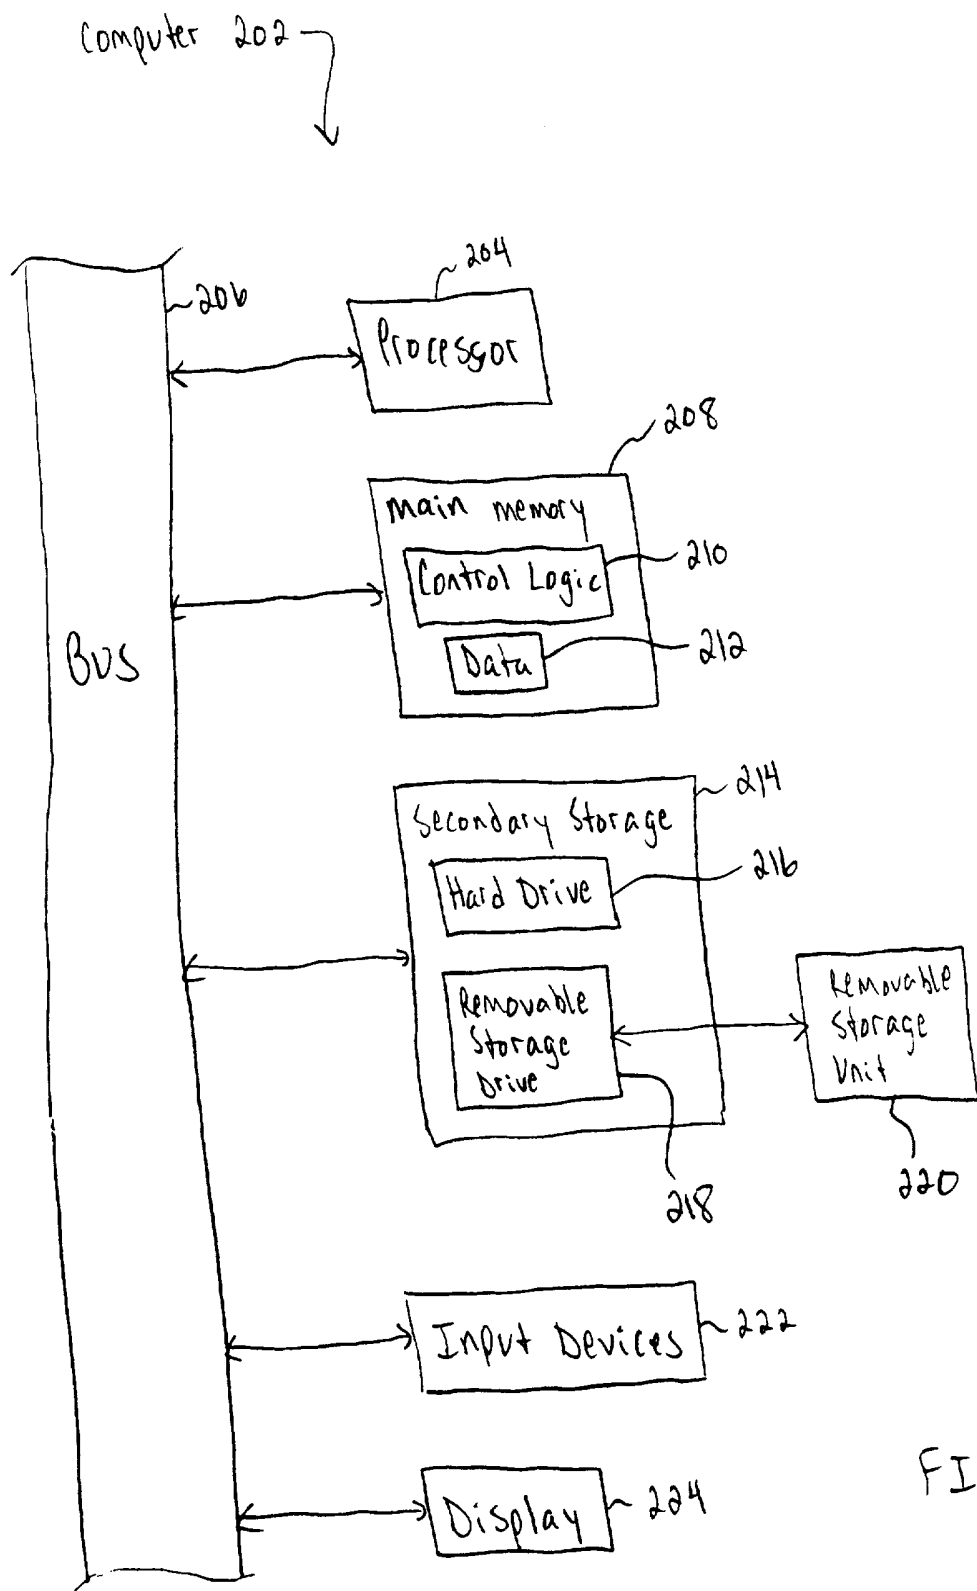 Computer 202
206
204
Processor
208
Main memory
Control Logic
210
Data
212
Bus
214
Secondary Storage
Hard Drive
216
Removable
Storage
Drive
218
Removable
Storage
Unit
220
Input Devices
222
Display
224
FI